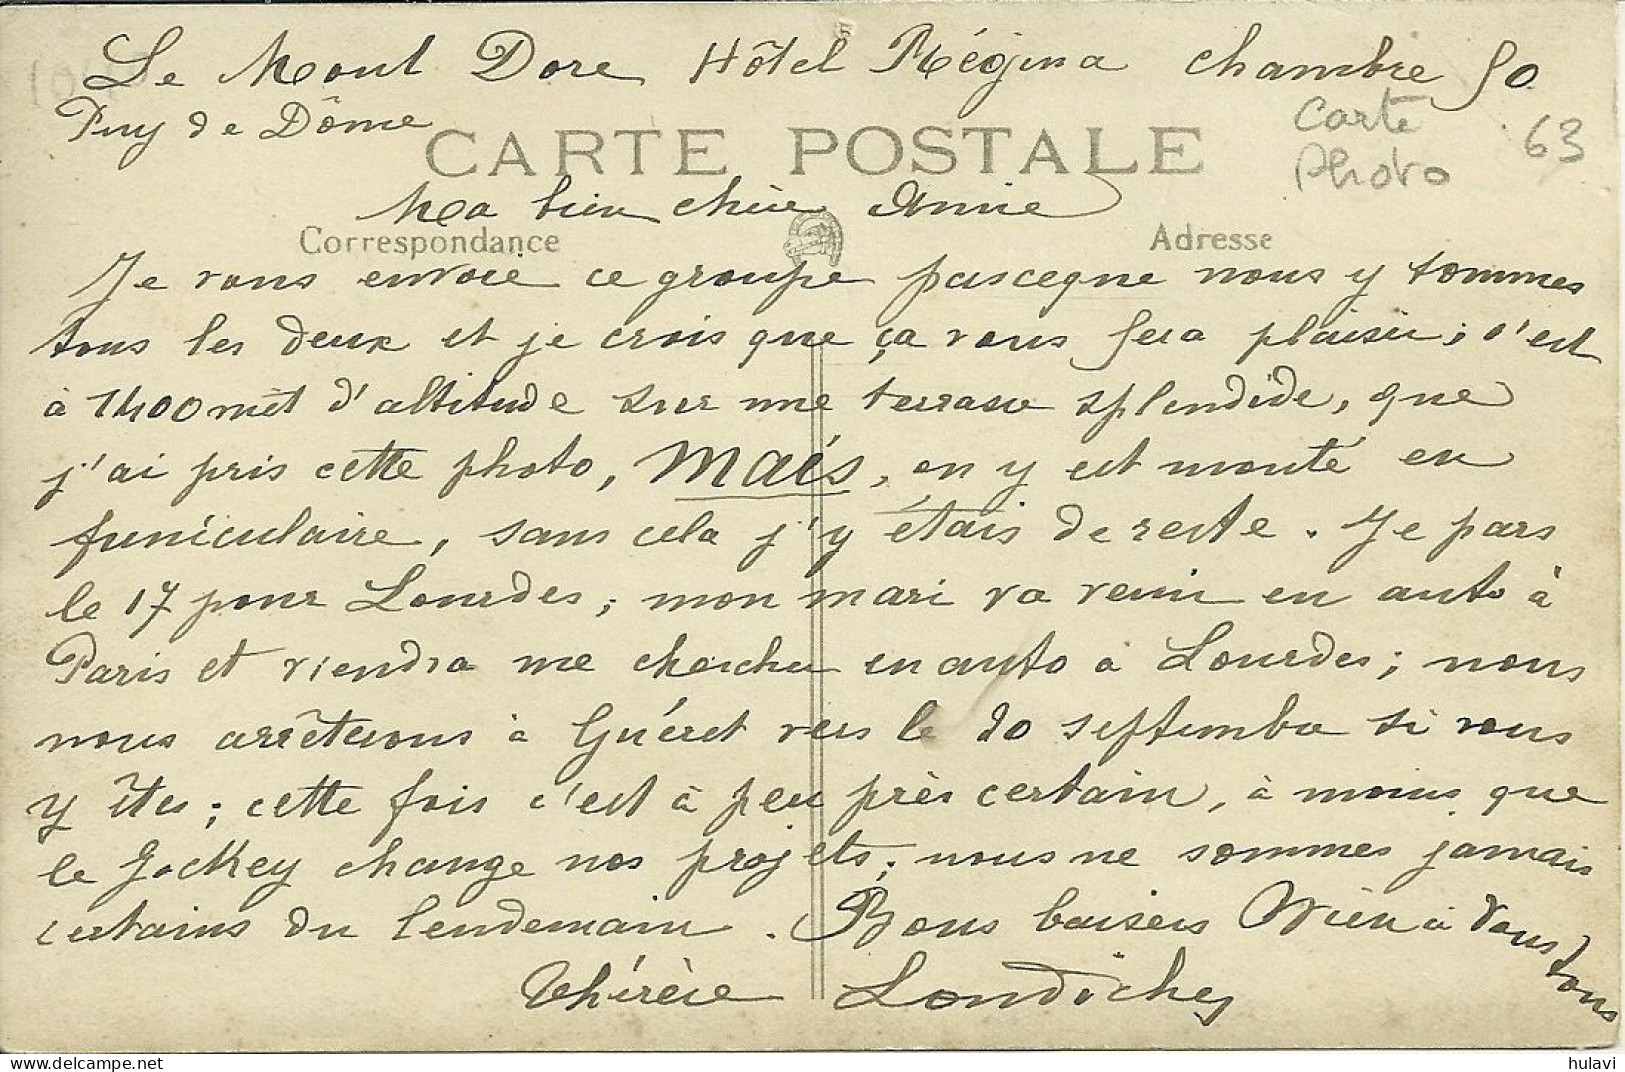 Le Mont Dore Hôtel Régina chambre 50
Puy de Dôme
Carte
Photo
63
CARTE POSTALE
Ma bien chère Annie
Correspondance
Adresse
Je vous envoie ce groupe pasceque nous y sommes
tous les deux et je crois que ça vous fera plaisir; c'est
à 1400 mèt d'altitude sur une terrasse splendide, que
j'ai pris cette photo, Mais, on y est monté en
funiculaire, sans cela j'y étais de reste. Je pars
le 17 pour Lourdes; mon mari va venir en auto à
Paris et viendra me chercher en auto à Lourdes; nous
nous arrêterons à Guéret vers le 20 septembre si vous
y êtes; cette fois c'est à peu près certain, à moins que
le Jockey change nos projets; nous ne sommes jamais
certains du lendemain. Bons baisers bien à vous
tous
Thérèse
hulavi